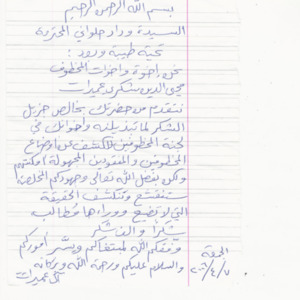 بسم الله الرحمن الرحيم
السيدة وداد حلواني المحترمة
تحية طيبة وبعد :
نحن إخوة وأخوات المخطوف
محي الدين شكري عميرات
نتقدم من حضرتك بخالص جزيل
الشكر لما تبذلينه وأخواتك في
لجنة المخطوفين للكشف عن أوضاع
المخطوفين والمفقودين المجهولة أمكنتهم
ولكن بفضل الله تعالى وجهودكم المخلصة
ستنقشع وتنكشف الحقيقة
التي لا تضيع ووراءها مُطالب
شكراً وألف شكر
وفقكم الله لمبتغاكم ويسّر أموركم
والسلام عليكم ورحمة الله وبركاته
الجمعة
٢٠٠٦/٤/٧